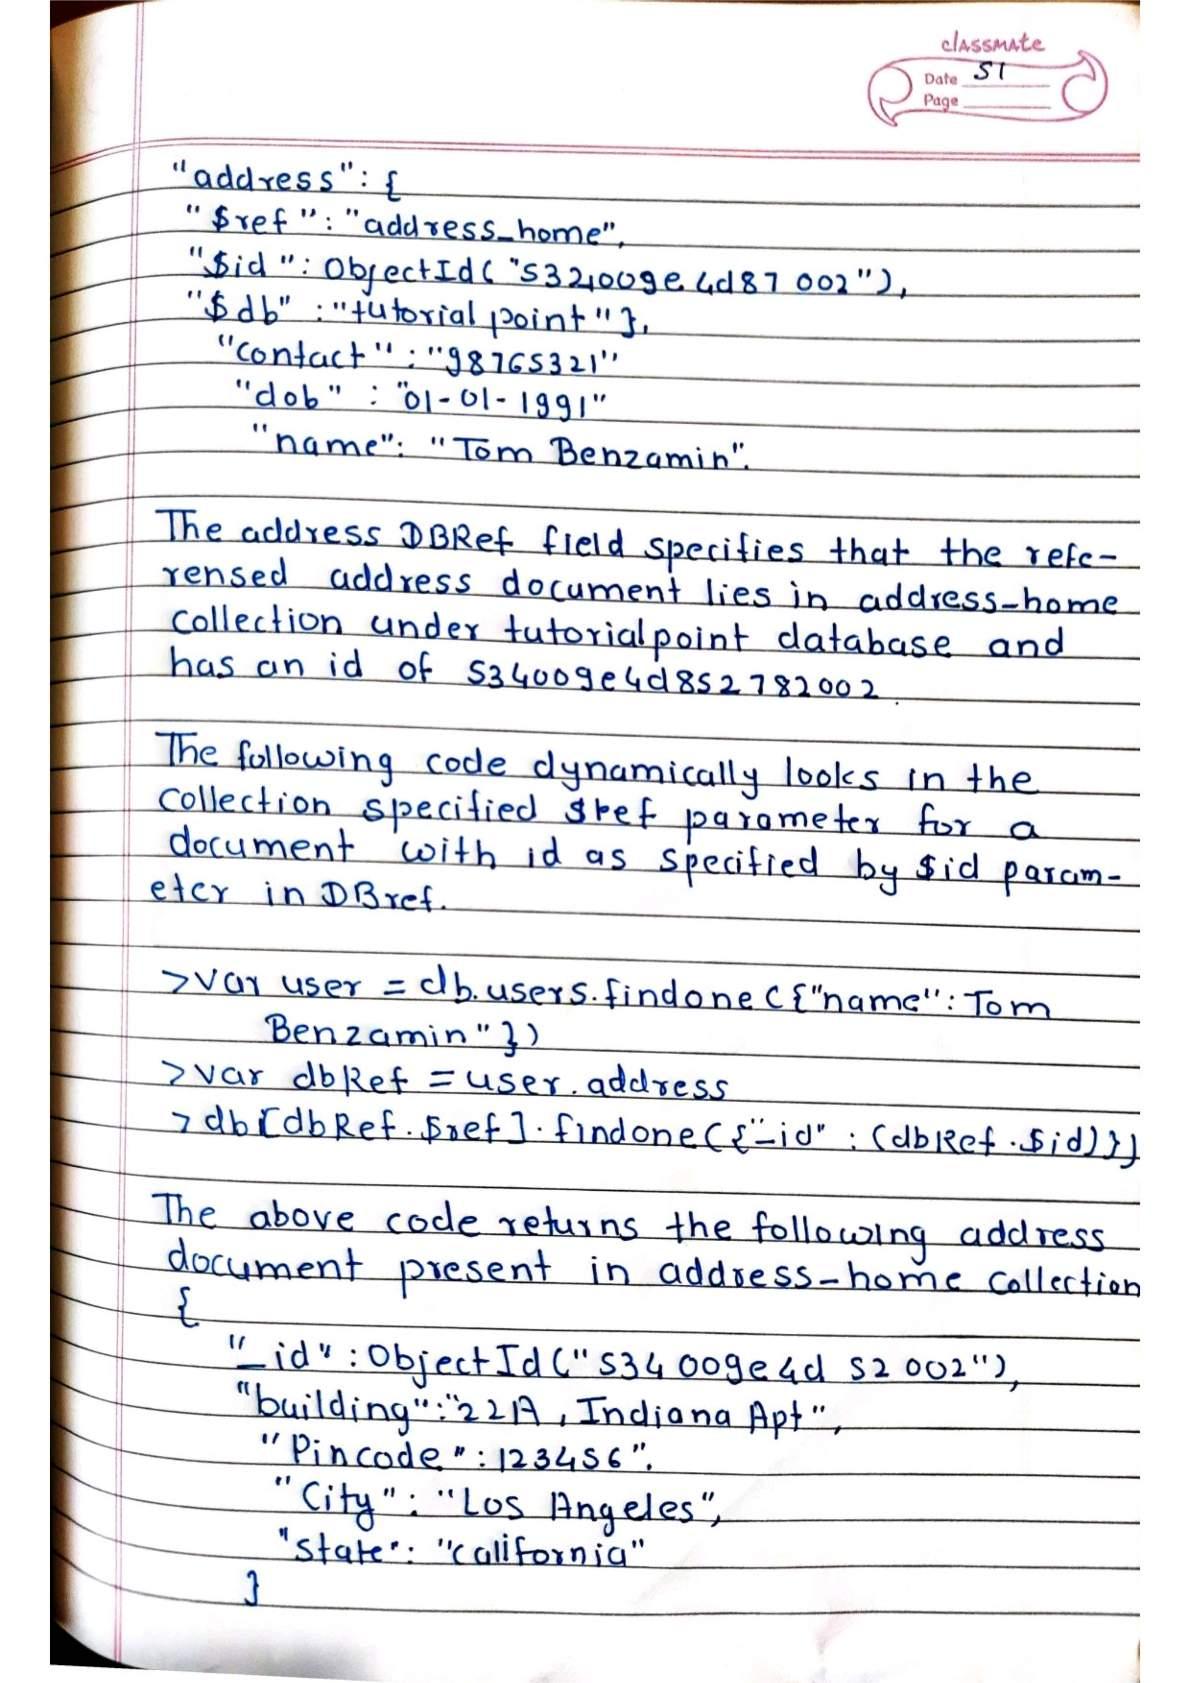 classmate
Date 51
Page
"address": {
"$ref": "address_home",
"$id": ObjectId("534009e4d87002"),
"$db": "tutorial point"},
"contact": "98765321"
"dob": "01-01-1991"
"name": "Tom Benzamin".
The address DBRef field specifies that the refe-
rensed address document lies in address-home
collection under tutorialpoint database and
has an id of 534009e4d852782002.
The following code dynamically looks in the
collection specified $ref parameter for a
document with id as specified by $id param-
eter in DBref.
>var user = db.users.findone({"name": Tom
Benzamin"})
>var dbRef = user.address
>db[dbRef.$ref].findone({"_id": (dbRef.$id)})
The above code returns the following address
document present in address-home collection
{
"_id": ObjectId("534009e4d52002"),
"building": "22A, Indiana Apt",
"Pincode": 123456".
"City": "Los Angeles",
"state": "california"
}